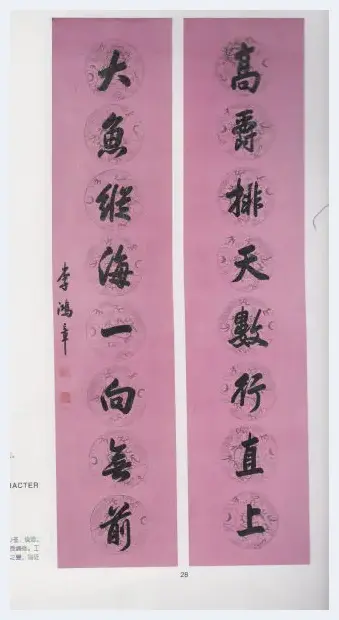 高爵排天數行直上
大魚縱海一向無前
李鴻章
ACTER
28